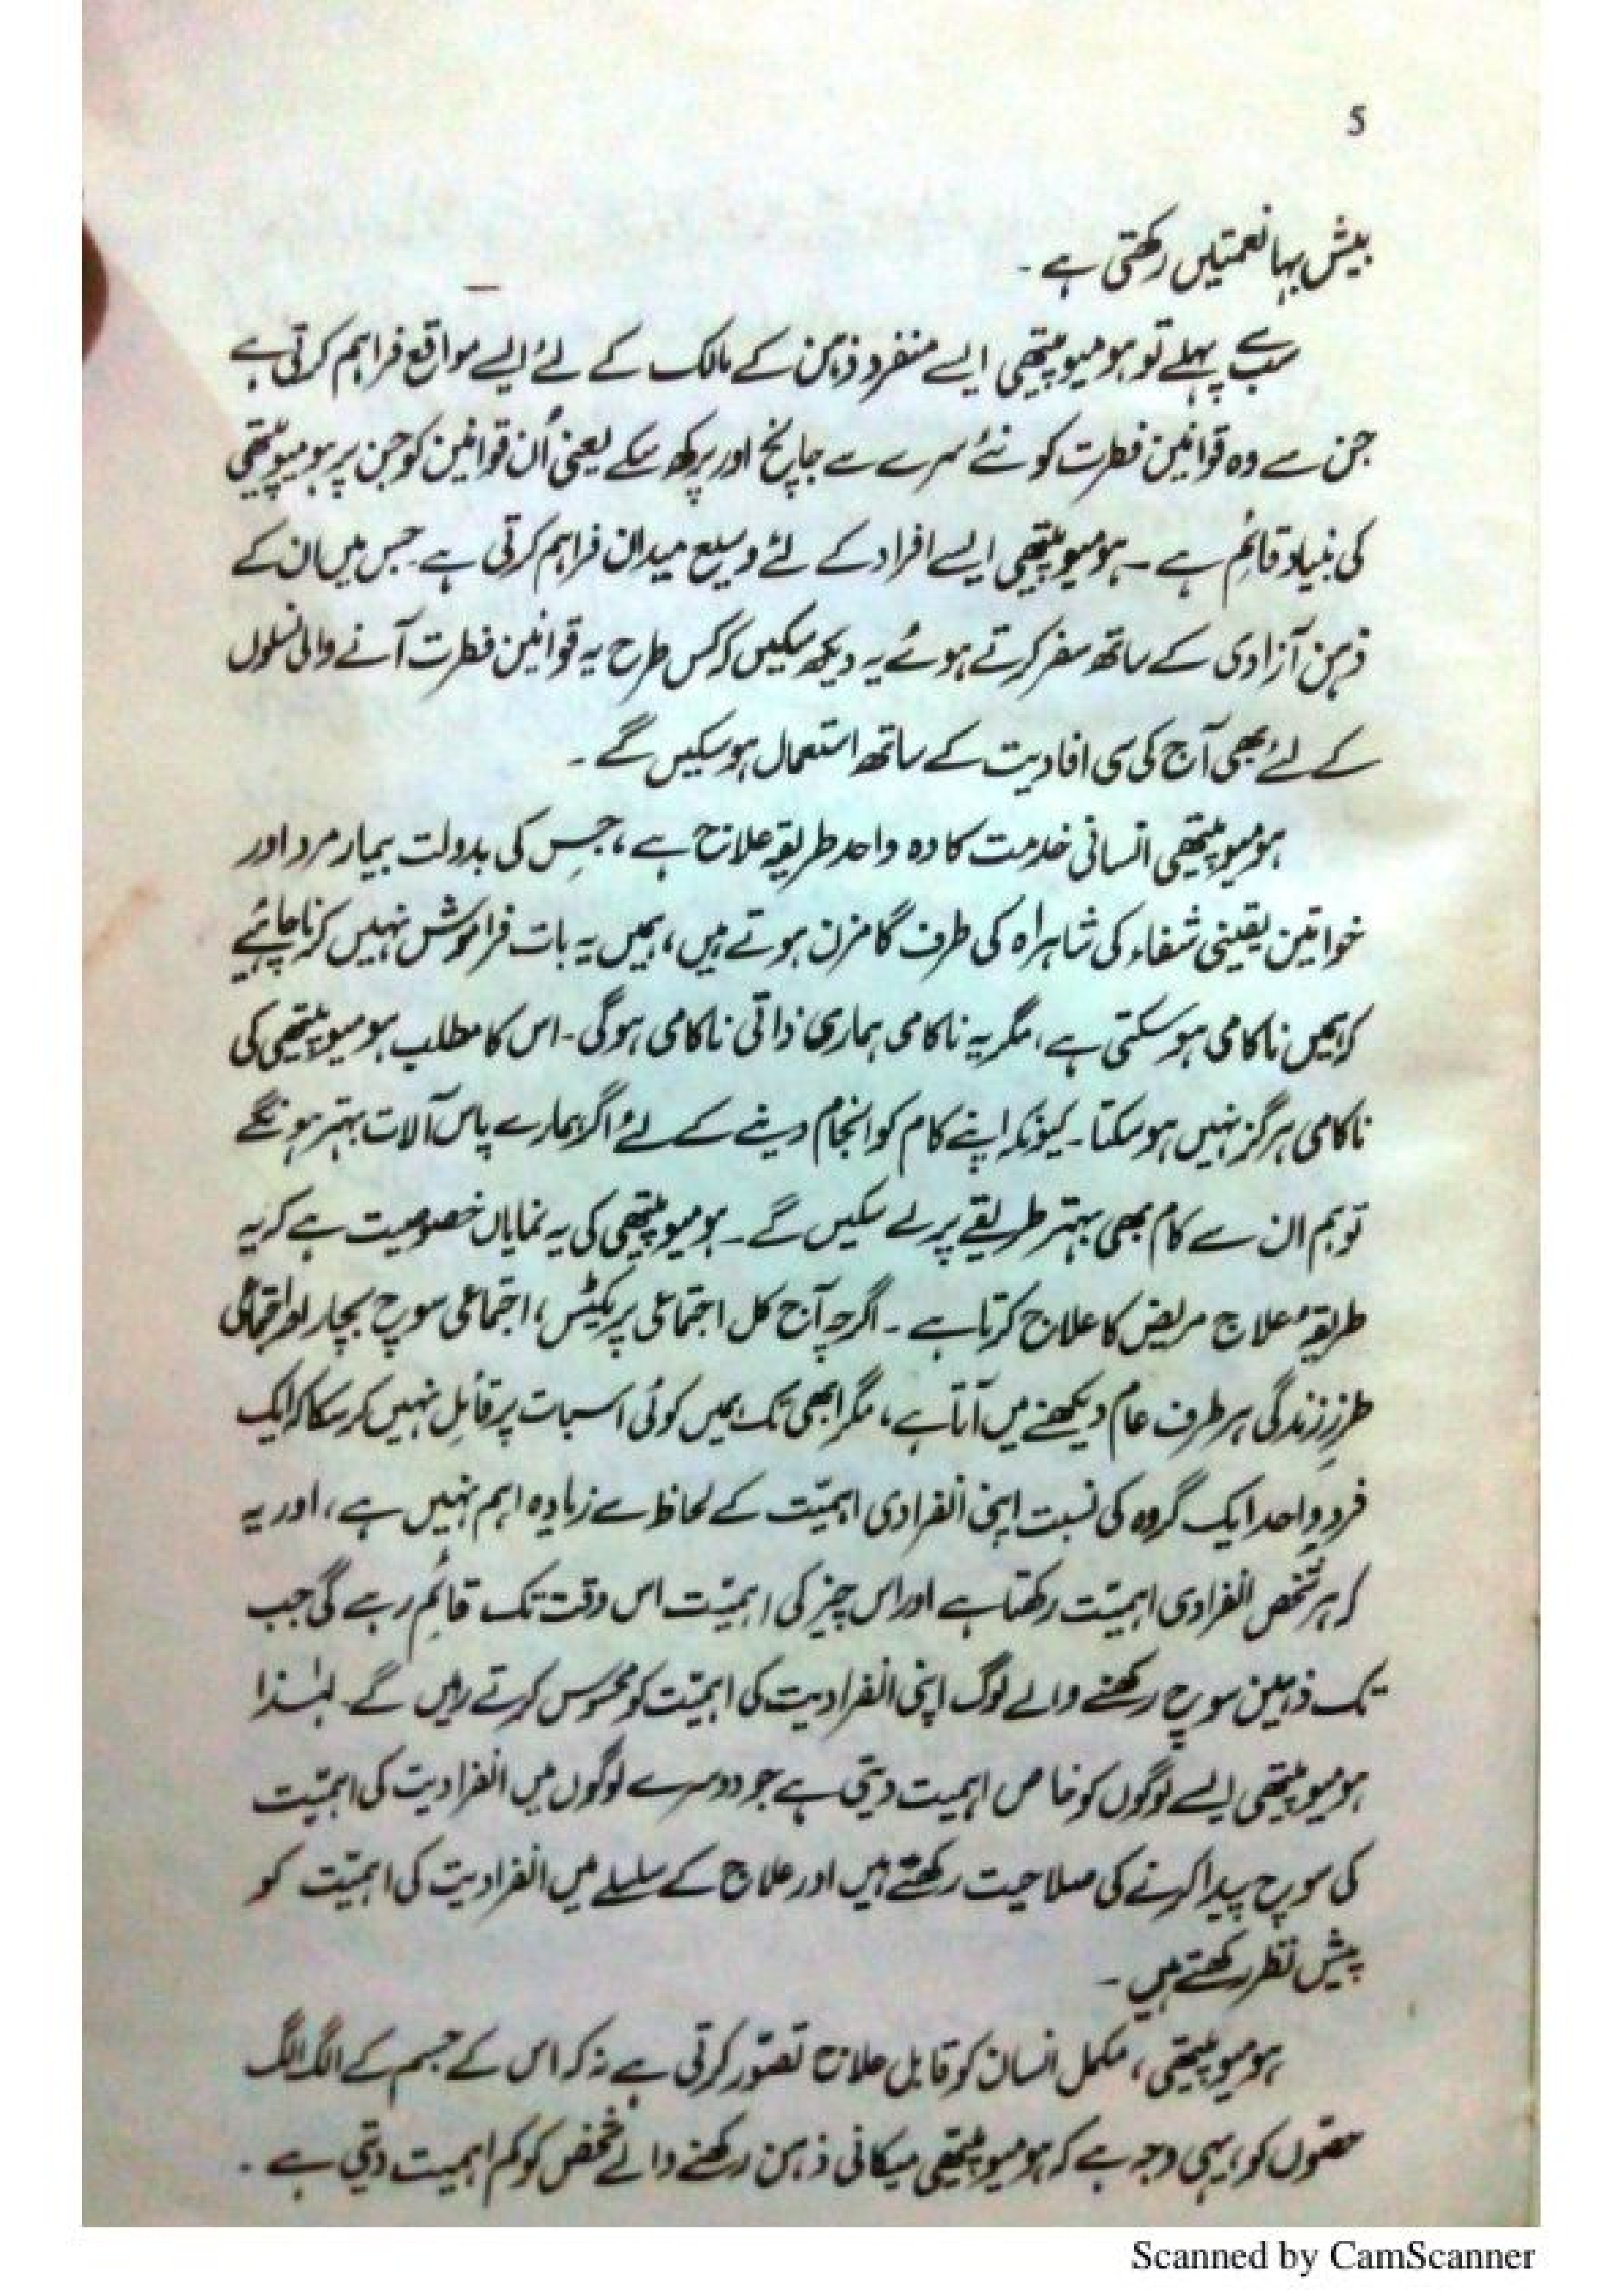 5
بیش بہا نعمتیں رکھتی ہے۔
سب سے پہلے تو ہومیوپیتھی ایسے منفرد ذہن کے مالک کے لئے ایسے مواقع فراہم کرتی ہے
جن سے وہ قوانین فطرت کو نئے سرے سے جانچ اور پرکھ سکے یعنی اُن قوانین کو جن پر ہومیوپیتھی
کی بنیاد قائم ہے۔ ہومیوپیتھی ایسے افراد کے لئے وسیع میدان فراہم کرتی ہے جس میں ان کے
ذہن آزادی کے ساتھ سفر کرتے ہوئے یہ دیکھ سکیں کہ کس طرح یہ قوانین فطرت آنے والی نسلوں
کے لئے بھی آج کی سی افادیت کے ساتھ استعمال ہو سکیں گے۔
ہومیوپیتھی انسانی خدمت کا وہ واحد طریقہ علاج ہے، جِس کی بدولت بیمار مرد اور
خواتین یقینی شفاء کی شاہراہ کی طرف گامزن ہوتے ہیں، ہمیں یہ بات فراموش نہیں کرنا چاہئیے
کہ ہمیں ناکامی ہو سکتی ہے، مگر یہ ناکامی ہماری ذاتی ناکامی ہوگی۔ اس کا مطلب ہومیوپیتھی کی
ناکامی ہرگز نہیں ہو سکتا۔ کیونکہ اپنے کام کو انجام دینے کے لئے اگر ہمارے پاس آلات بہتر ہونگے
تو ہم ان سے کام بھی بہتر طریقے پر لے سکیں گے۔ ہومیوپیتھی کی یہ نمایاں خصوصیت ہے کہ یہ
طریقۂ علاج مریض کا علاج کرتا ہے۔ اگرچہ آج کل اجتماعی پریکٹس، اجتماعی سوچ بچار اور اجتماعی
طرزِ زندگی ہر طرف عام دیکھنے میں آتا ہے، مگر ابھی تک ہمیں کوئی اس بات پر قائل نہیں کر سکا کہ ایک
فردِ واحد ایک گروہ کی نسبت اپنی انفرادی اہمیّت کے لحاظ سے زیادہ اہم نہیں ہے، اور یہ
کہ ہر شخص انفرادی اہمیّت رکھتا ہے اور اس چیز کی اہمیّت اس وقت تک قائم رہے گی جب
تک ذہین سوچ رکھنے والے لوگ اپنی انفرادیت کی اہمیّت کو محسوس کرتے رہیں گے۔ لہٰذا
ہومیوپیتھی ایسے لوگوں کو خاص اہمیت دیتی ہے جو دوسرے لوگوں میں انفرادیت کی اہمیّت
کی سوچ پیدا کرنے کی صلاحیت رکھتے ہیں اور علاج کے سلسلے میں انفرادیت کی اہمیّت کو
پیش نظر رکھتے ہیں۔
ہومیوپیتھی، مکمل انسان کو قابل علاج تصّور کرتی ہے نہ کہ اس کے جسم کے الگ الگ
حصّوں کو، یہی وجہ ہے کہ ہومیوپیتھی میکانی ذہن رکھنے والے شخص کو کم اہمیت دیتی ہے۔
Scanned by CamScanner